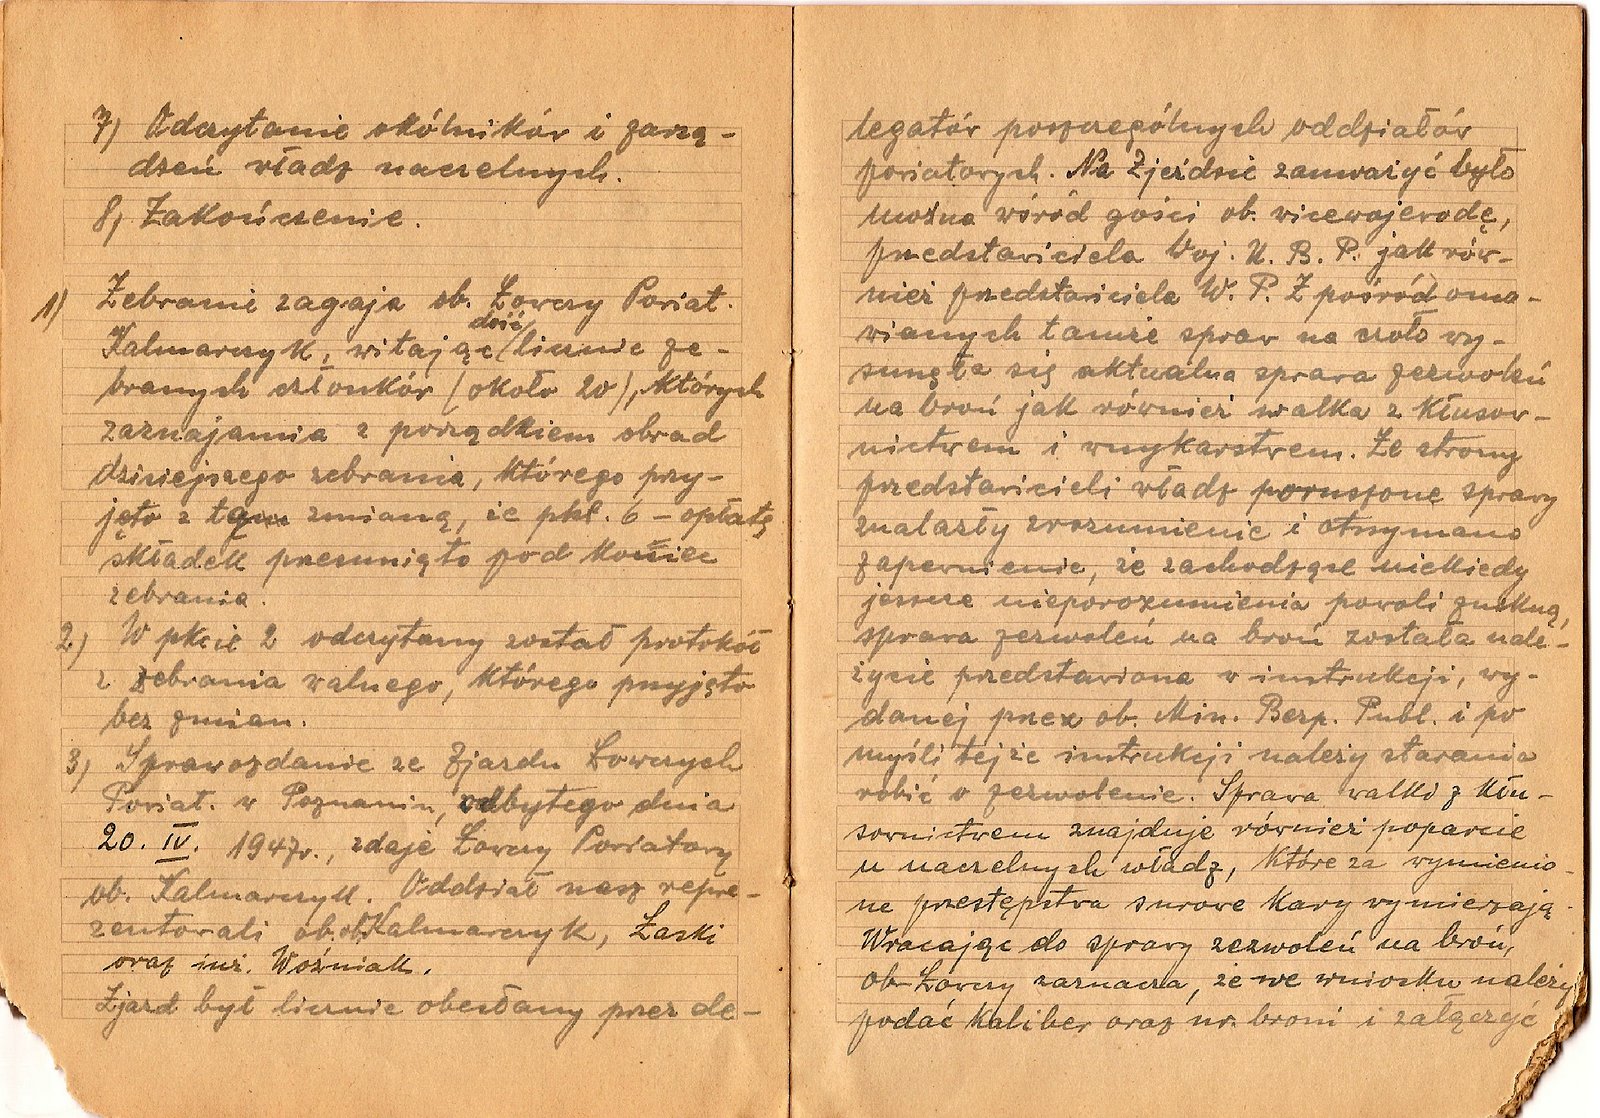 7) Odczytanie okólników i zarzą-
dzeń władz naczelnych.
8) Zakończenie.
1) Zebranie zagaja ob. Łowczy Powiat.
dość
Kalmarczyk, witając licznie ze-
branych członków (około 20), których
zaznajamia z porządkiem obrad
dzisiejszego zebrania, którego przy-
jęto z tą zmianą, że pkt. 6 – opłatę
składek przesunięto pod koniec
zebrania.
2) W pkcie 2 odczytany został protokół
z zebrania walnego, którego przyjęto
bez zmian.
3) Sprawozdanie ze Zjazdu Łowczych
Powiat. w Poznaniu, odbytego dnia
20. IV. 1947r., zdaje Łowczy Powiatowy
ob. Kalmarczyk. Oddział nasz repre-
zentowali ob.ob. Kalmarczyk, Łaski
oraz inż. Woźniak.
Zjazd był licznie obesłany przez de-
legatów poszczególnych oddziałów
powiatowych. Na Zjeździe zauważyć było
można wśród gości ob. wicewojewodę,
przedstawiciela Woj. U. B. P. jak rów-
nież przedstawiciela W. P. Z pośród oma-
wianych tamże spraw na czoło wy-
sunęła się aktualna sprawa zezwoleń
na broń jak również walka z kłusow-
nictwem i wnykarstwem. Ze strony
przedstawicieli władz poruszone sprawy
znalazły zrozumienie i otrzymano
zapewnienie, że zachodzące niekiedy
jeszcze nieporozumienia powoli znikną,
sprawa zezwoleń na broń została nale-
życie przedstawiona w instrukcji, wy-
danej przez ob. Min. Bezp. Publ. i po
myśli tejże instrukcji należy starania
robić o zezwolenie. Sprawa walki z kłu-
sownictwem znajduje również poparcie
u naczelnych władz, które za wymienio-
ne przestępstwa surowe kary wymierzają.
Wracając do sprawy zezwoleń na broń,
ob. Łowczy zaznacza, że we wniosku należy
podać kaliber oraz nr. broni i załączyć